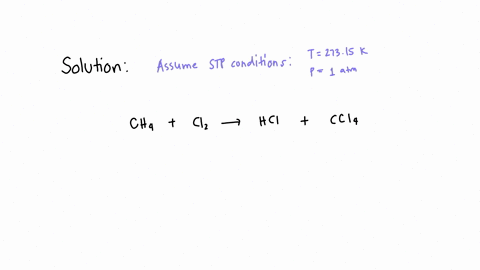 Solution: Assume STP conditions: T = 273.15 K
P = 1 atm
CH4 + Cl2 → HCl + CCl4